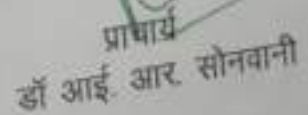 प्राचार्य
डॉ आई. आर. सोनवानी